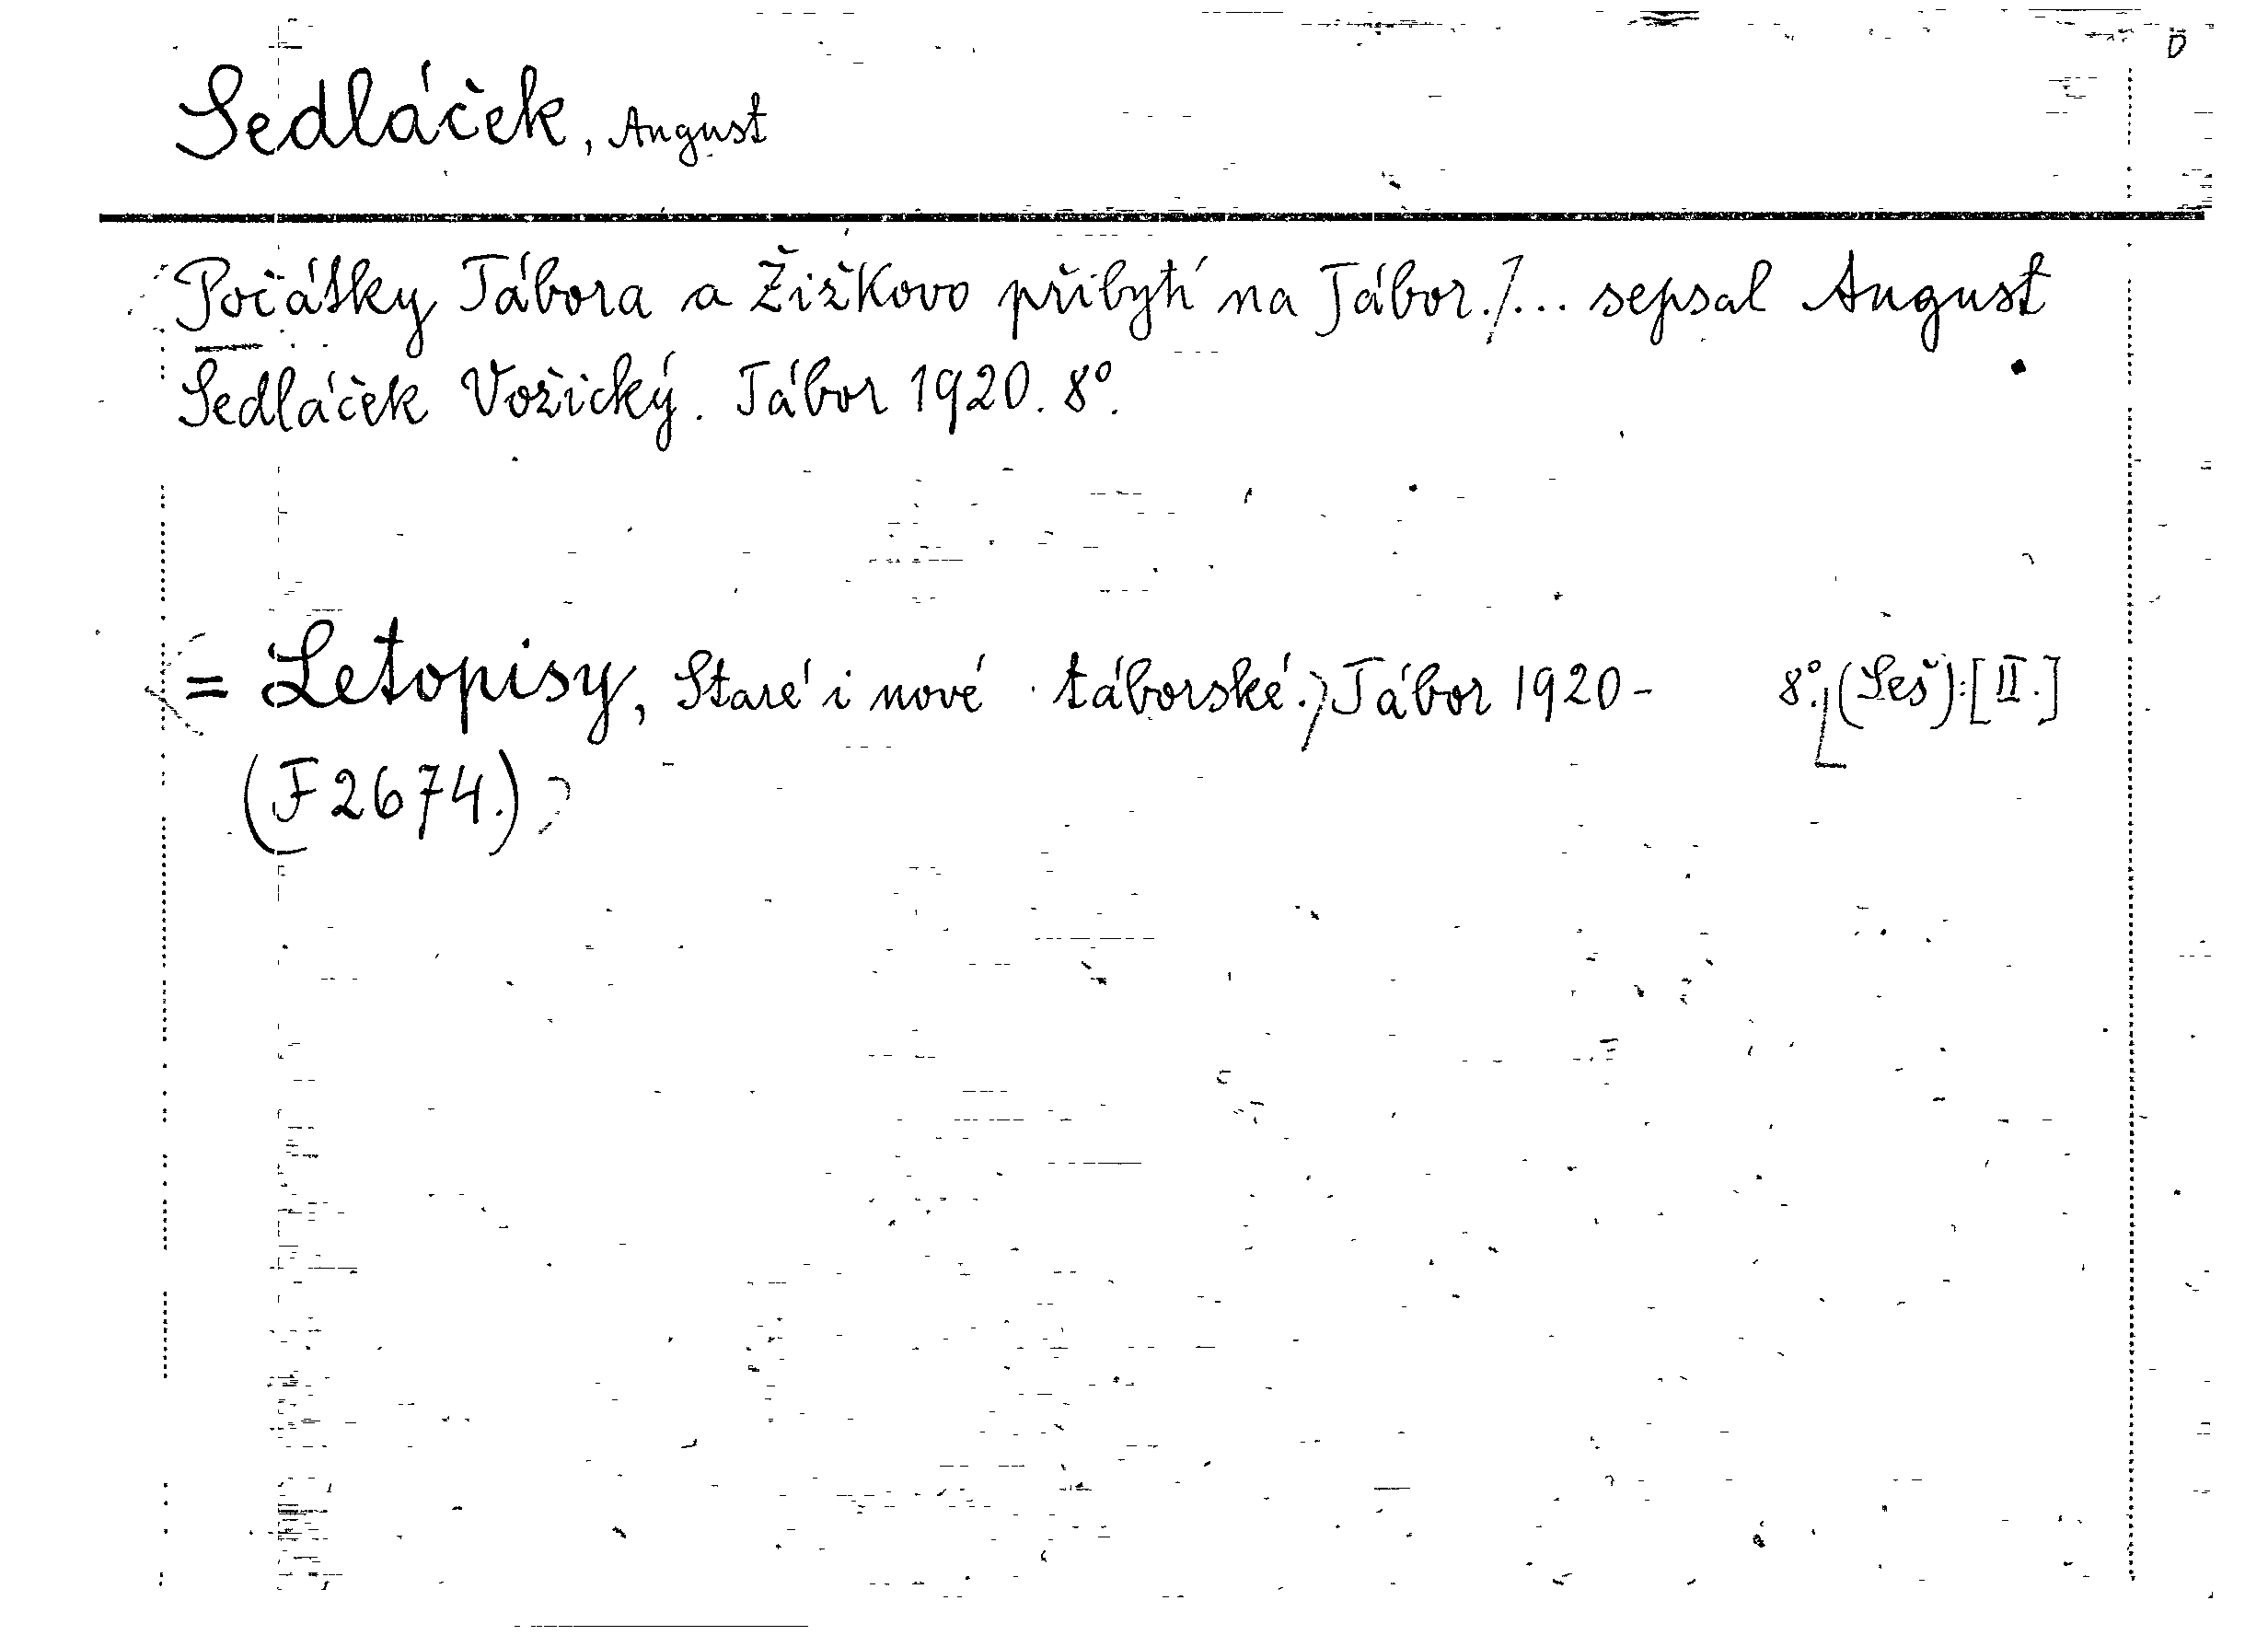 Sedláček, August
Počátky Tábora a Žižkovo přibytí na Tábor./... sepsal August
Sedláček Vožický. Tábor 1920. 8°.
= Letopisy, Staré i nové táborské.) Tábor 1920- 8°. (Seš): [II.]
(F 2674.)